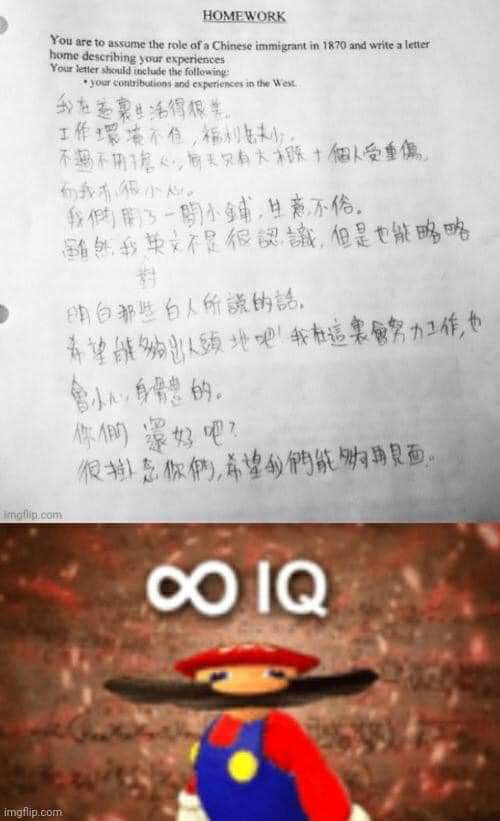 HOMEWORK
You are to assume the role of a Chinese immigrant in 1870 and write a letter
home describing your experiences
Your letter should include the following:
• your contributions and experiences in the West.
我在這裏生活得很苦。
工作環境不佳，福利也缺少。
不過不用擔心，每天只有大概十個人受重傷，
而我亦很小心。
我們開了一間小鋪，生意不俗。
雖然我英文不是很認識，但是也能略略
對
明白那些白人所說的話。
希望能夠出人頭地吧！我在這裏會努力工作，也
會小心身體的。
你們還好吧？
很掛念你們，希望我們能夠再見面。
imgflip.com
∞ IQ
imgflip.com